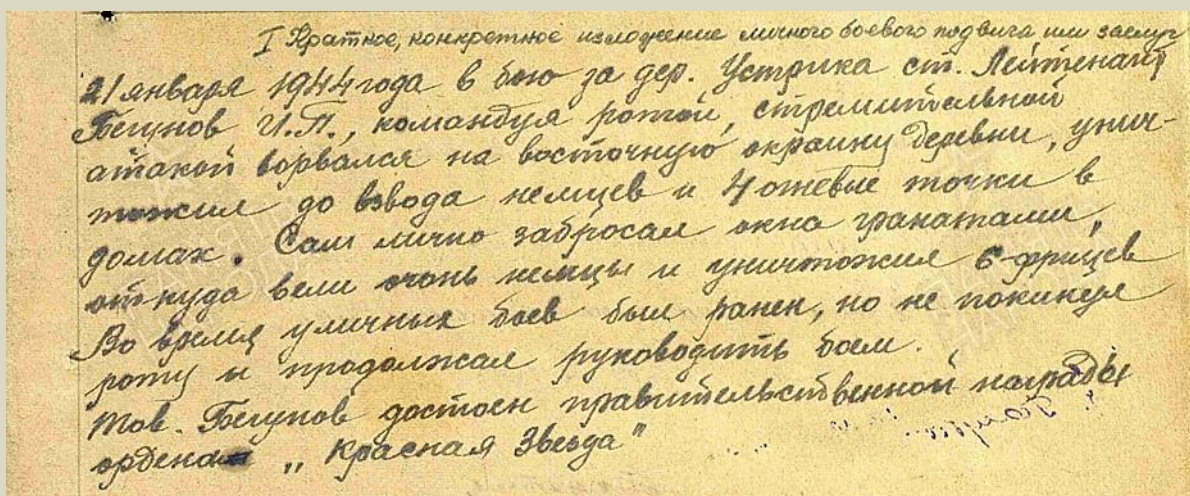 I Краткое, конкретное изложение личного боевого подвига или заслуг
21 января 1944 года в бою за дер. Устрика ст. Лейтенант
Бегунов И.П., командуя ротой, стремительной
атакой ворвался на восточную окраину деревни, унич-
тожил до взвода немцев и 4 огневые точки в
домах. Сам лично забросал окна гранатами,
откуда вели огонь немцы и уничтожил 6 фрицев
Во время уличных боев был ранен, но не покинул
роту и продолжал руководить боем.
Тов. Бегунов достоен правительственной награды
ордена „Красная Звезда"